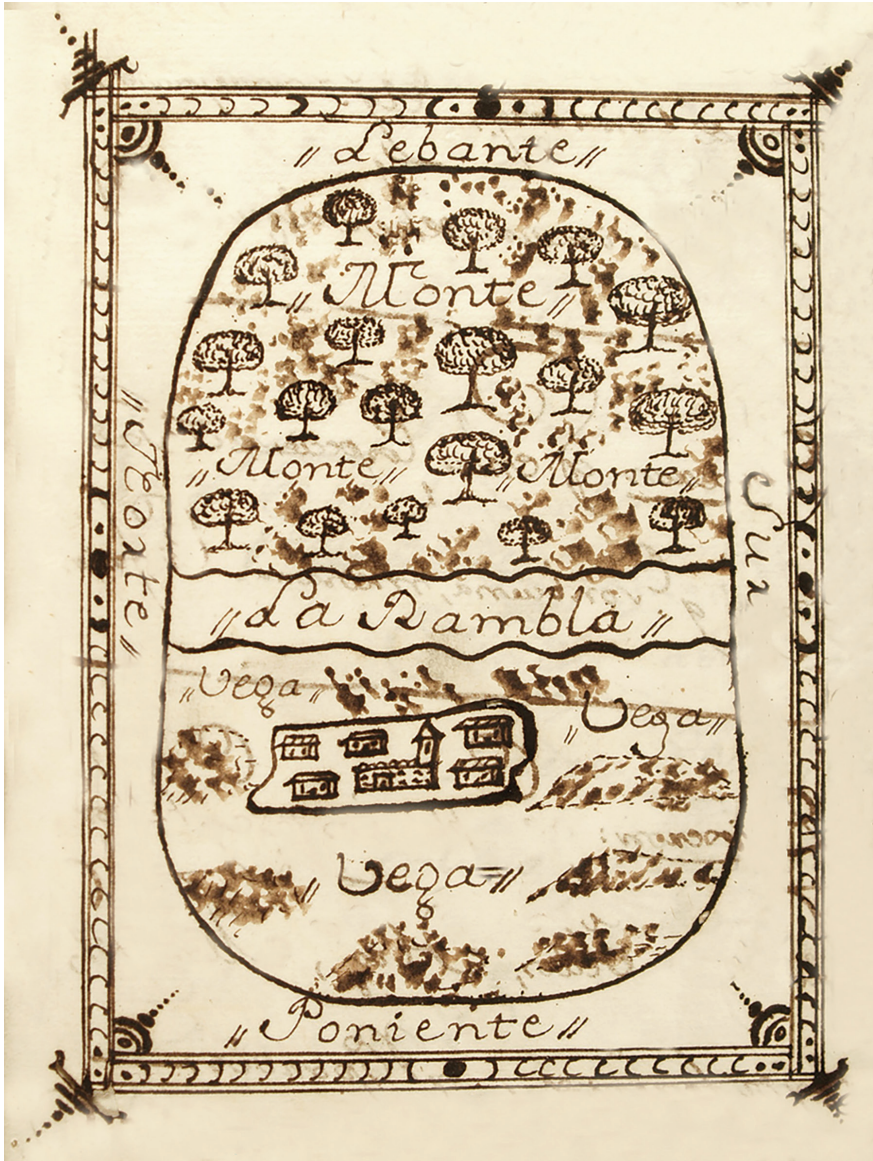 〃 Lebante 〃
〃 Monte 〃
〃 Monte 〃 〃 Monte 〃
〃 Norte 〃
Sur
〃 La Rambla 〃
〃 Vega 〃
〃 Vega 〃
〃 Vega 〃
〃 Poniente 〃